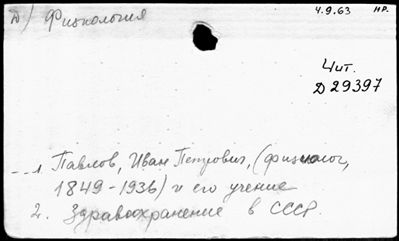 Д) Физиология
4.9.63 нр.
Чит.
Д 29397
1. Павлов, Иван Петрович, (физиолог,
1849-1936) и его учение
2. Здравоохранение в СССР.